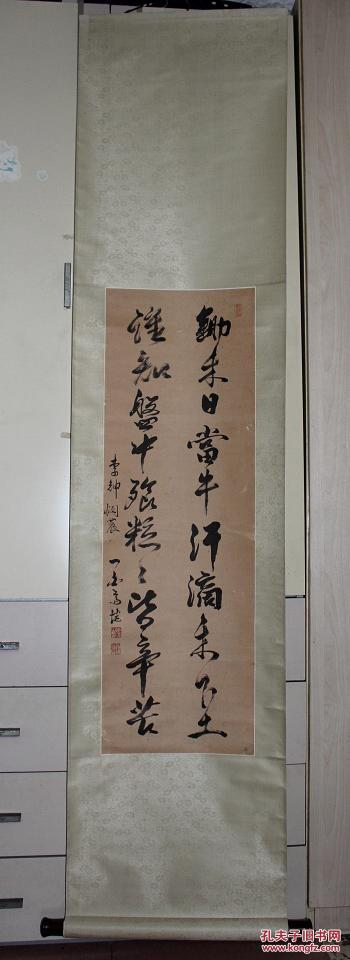 鋤禾日當午汗滴禾下土
誰知盤中飧粒〻皆辛苦
李紳憫農
孔夫子旧书网